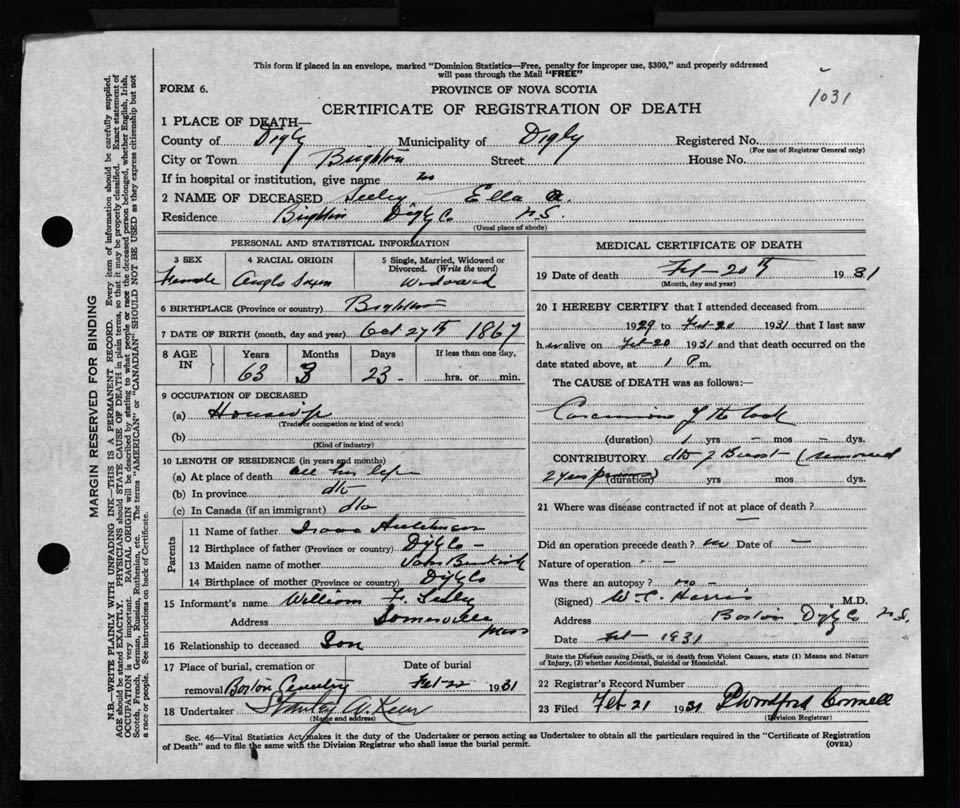 This form if placed in an envelope, marked "Dominion Statistics—Free, penalty for improper use, $300," and properly addressed
will pass through the Mail "FREE"
FORM 6. PROVINCE OF NOVA SCOTIA
1031
CERTIFICATE OF REGISTRATION OF DEATH
1 PLACE OF DEATH—
County of Digby Municipality of Digby Registered No.
(For use of Registrar General only)
City or Town Brighton Street House No.
If in hospital or institution, give name no
2 NAME OF DECEASED Seeley Ella A.
Residence Brighton Digby Co N.S.
(Usual place of abode)
PERSONAL AND STATISTICAL INFORMATION
3 SEX 4 RACIAL ORIGIN 5 Single, Married, Widowed or
Divorced. (Write the word)
Female Anglo Saxon Widowed
6 BIRTHPLACE (Province or country) Brighton
7 DATE OF BIRTH (month, day and year) Oct 27th 1867
8 AGE IN Years Months Days If less than one day,
63 3 23 - hrs. or min.
9 OCCUPATION OF DECEASED
(a) Housewife
(Trade or occupation or kind of work)
(b)
(Kind of industry)
10 LENGTH OF RESIDENCE (in years and months)
(a) At place of death all her life
(b) In province do
(c) In Canada (if an immigrant) do
Parents
11 Name of father
12 Birthplace of father (Province or country) Digby Co -
13 Maiden name of mother
14 Birthplace of mother (Province or country) Digby Co
15 Informant's name William F. Seeley
Address Somerville
Mass
16 Relationship to deceased Son
17 Place of burial, cremation or Date of burial
removal Cemetery Feb-22 1931
18 Undertaker Stanley A.
(Name and address)
MEDICAL CERTIFICATE OF DEATH
19 Date of death Feb-20th 1931
(Month, day and year)
20 I HEREBY CERTIFY that I attended deceased from
1929 to Feb-20 1931 that I last saw
her alive on Feb-20 1931 and that death occurred on the
date stated above, at 1 P.m.
The CAUSE of DEATH was as follows:—
Carcinoma of the
(duration) 1 yrs - mos - dys.
CONTRIBUTORY do of Breast (removed
2 years (duration) yrs. mos. dys.
21 Where was disease contracted if not at place of death?
—
Did an operation precede death? no Date of —
Nature of operation - -
Was there an autopsy? no -
(Signed) W. C. Harris M.D.
Address Digby Co N.S.
Date Feb- 1931
State the Disease causing Death, or in death from Violent Causes, state (1) Means and Nature
of Injury, (2) whether Accidental, Suicidal or Homicidal.
22 Registrar's Record Number
23 Filed Feb 21 1931
(Division Registrar)
Sec. 46—Vital Statistics Act, makes it the duty of the Undertaker or person acting as Undertaker to obtain all the particulars required in the "Certificate of Registration
of Death" and to file the same with the Division Registrar who shall issue the burial permit. (OVER)
MARGIN RESERVED FOR BINDING
N.B.—WRITE PLAINLY WITH UNFADING INK—THIS IS A PERMANENT RECORD. Every item of information should be carefully supplied.
AGE should be stated EXACTLY. PHYSICIANS should STATE CAUSE OF DEATH in plain terms, so that it may be properly classified. Exact statement of
OCCUPATION is very important. RACIAL ORIGIN will be described by stating to what people or race the deceased person belonged, whether English, Irish,
Scotch, French, German, Russian, Ruthenian, etc. The terms "AMERICAN" or "CANADIAN" SHOULD NOT BE USED as they express citizenship but not
a race or people. See instructions on back of Certificate.